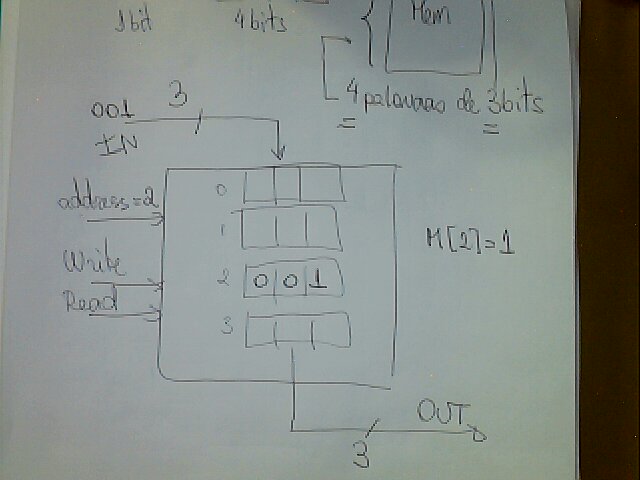 1bit 4bits
Mem
4 palavras de 3bits
3
001
IN
address=2
Write
Read
0
1
2 0 0 1
3
M[2]=1
OUT
3